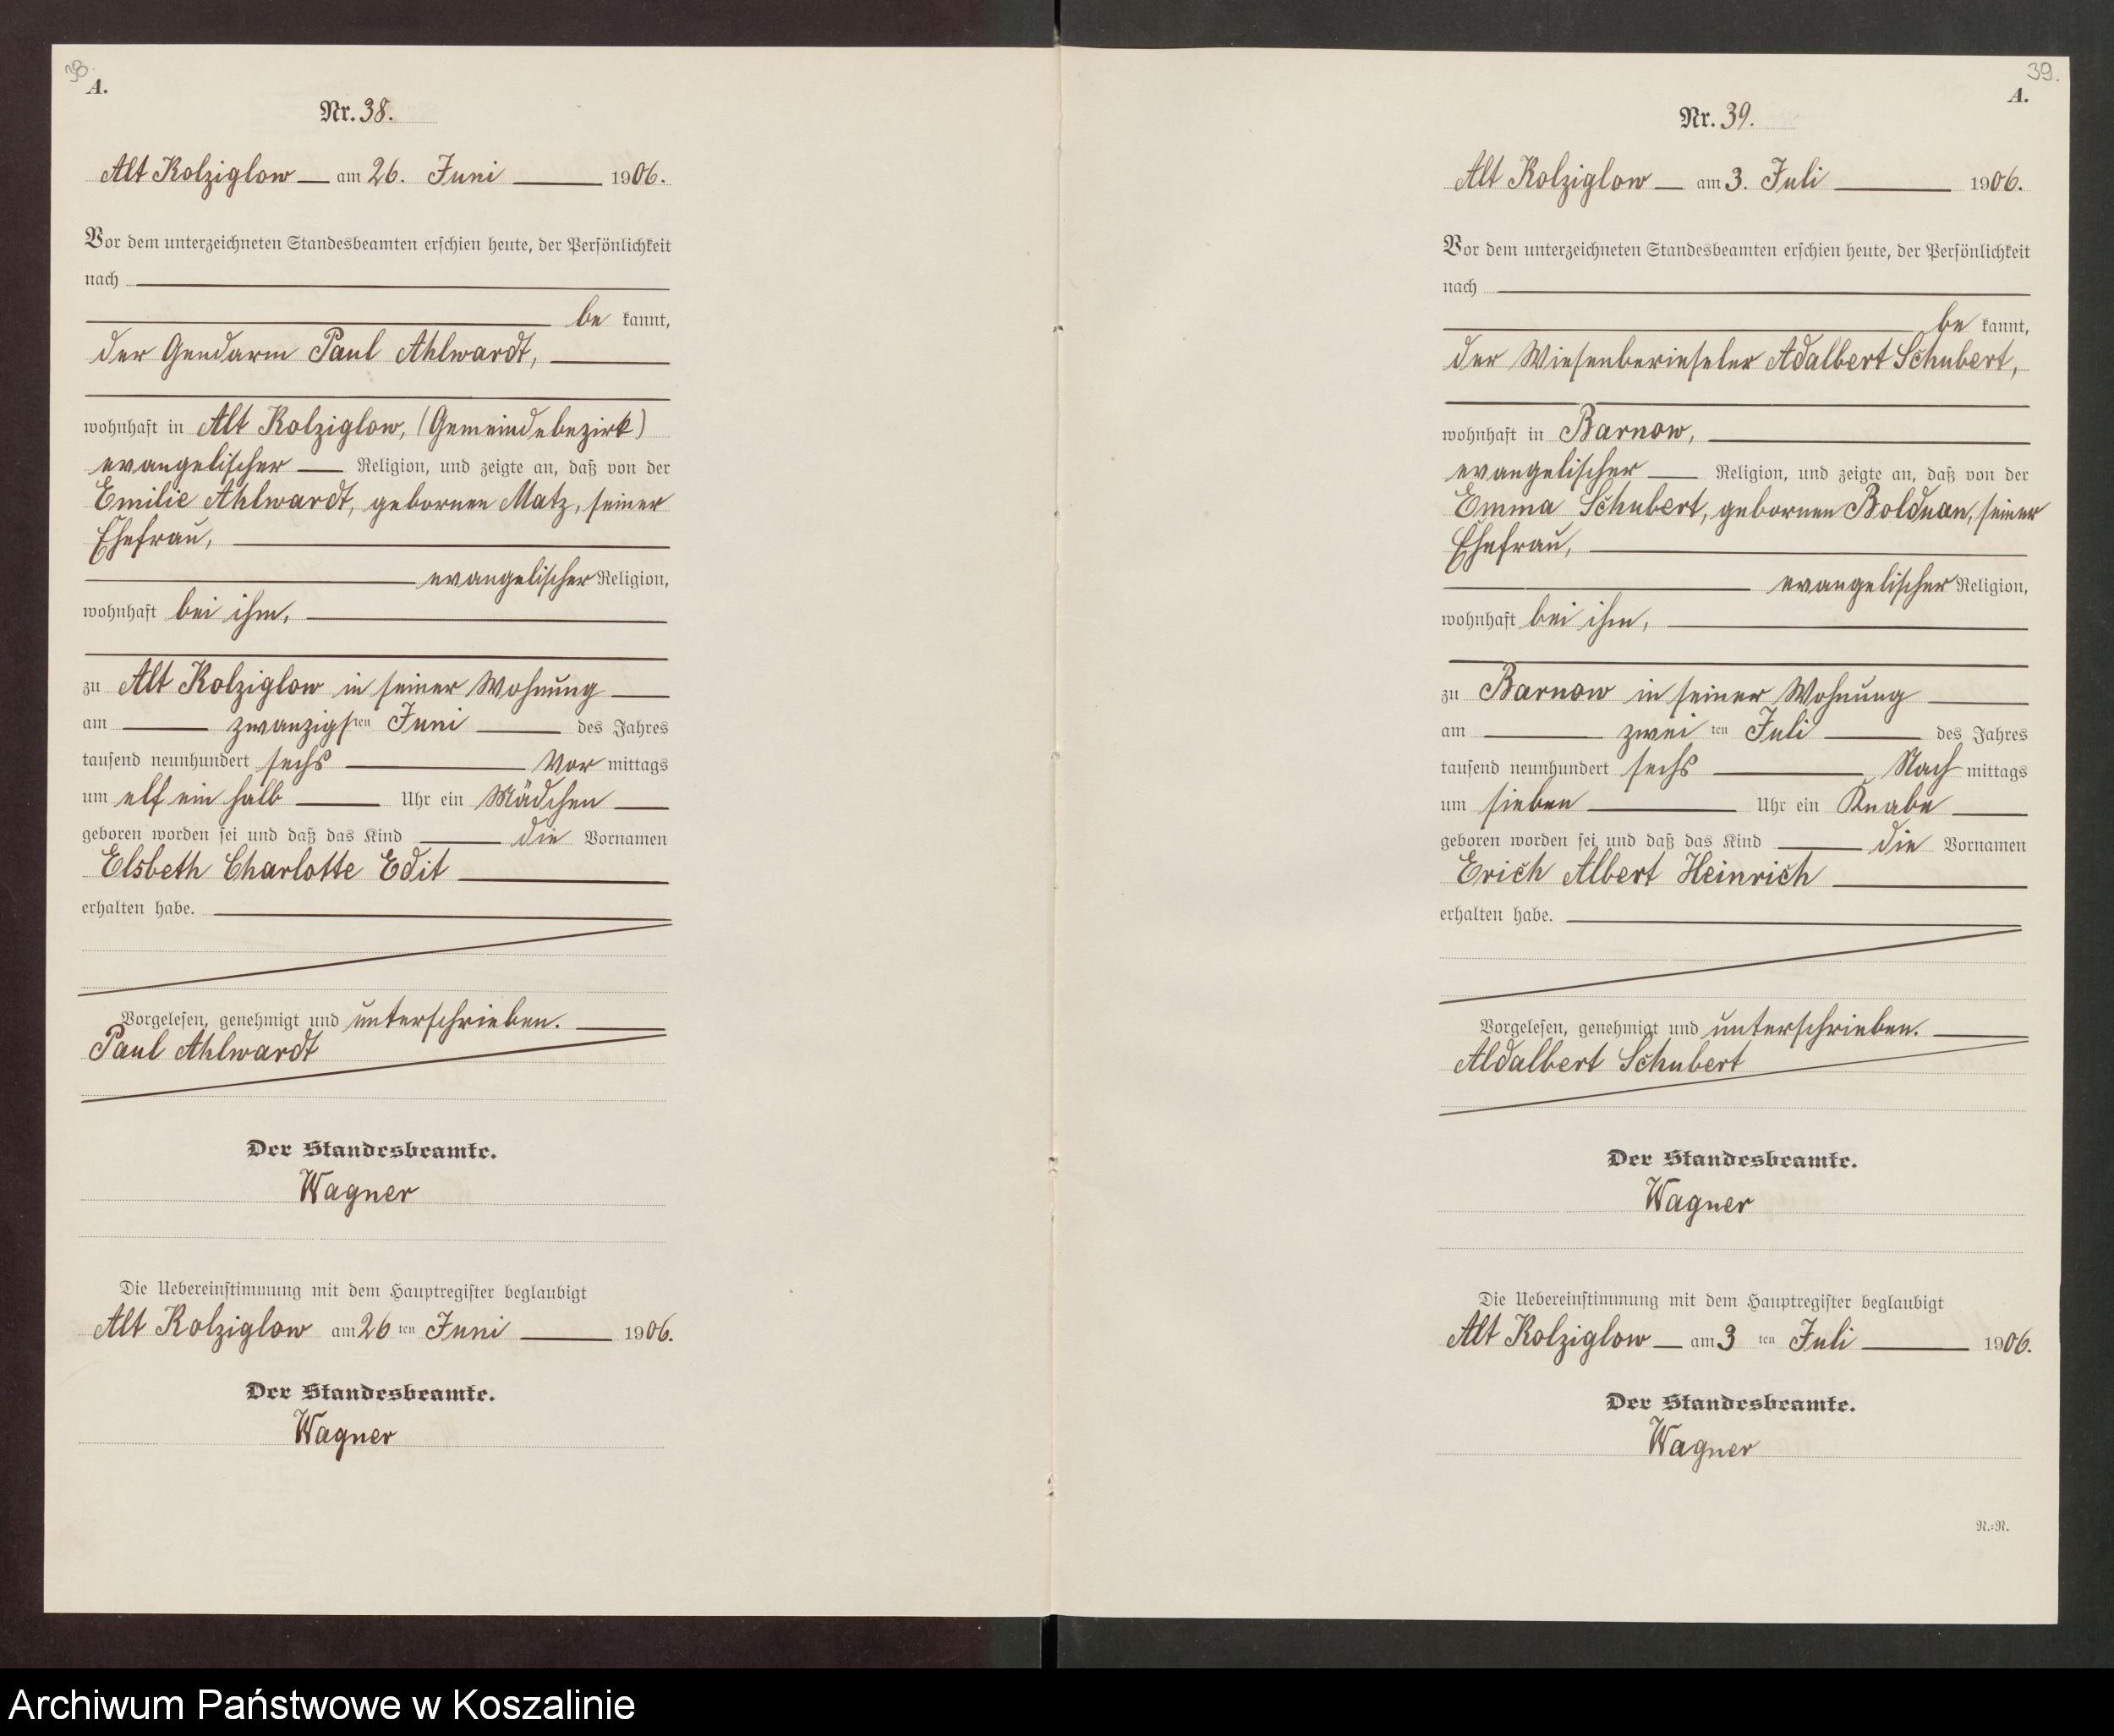 38.
A.
Nr. 38.
Alt Kolziglow am 26. Juni 1906.
Vor dem unterzeichneten Standesbeamten erschien heute, der Persönlichkeit
nach
be kannt,
der Gendarm Paul Ahlwardt,
wohnhaft in Alt Kolziglow, (Gemeindebezirk)
evangelischer Religion, und zeigte an, daß von der
Emilie Ahlwardt, gebornen Matz, seiner
Ehefrau,
evangelischer Religion,
wohnhaft bei ihm,
zu Alt Kolziglow in seiner Wohnung
am zwanzigsten Juni des Jahres
tausend neunhundert sechs Vor mittags
um elf ein halb Uhr ein Mädchen
geboren worden sei und daß das Kind die Vornamen
Elsbeth Charlotte Edit
erhalten habe.
Vorgelesen, genehmigt und unterschrieben.
Paul Ahlwardt
Der Standesbeamte.
Wagner
Die Uebereinstimmung mit dem Hauptregister beglaubigt
Alt Kolziglow am 26 ten Juni 1906.
Der Standesbeamte.
Wagner
39.
A.
Nr. 39.
Alt Kolziglow am 3. Juli 1906.
Vor dem unterzeichneten Standesbeamten erschien heute, der Persönlichkeit
nach
be kannt,
der Wiesenberieseler Adalbert Schubert,
wohnhaft in Barnow,
evangelischer Religion, und zeigte an, daß von der
Emma Schubert, gebornen Bolduan, seiner
Ehefrau,
evangelischer Religion,
wohnhaft bei ihm,
zu Barnow in seiner Wohnung
am zwei ten Juli des Jahres
tausend neunhundert sechs Nach mittags
um sieben Uhr ein Knabe
geboren worden sei und daß das Kind die Vornamen
Erich Albert Heinrich
erhalten habe.
Vorgelesen, genehmigt und unterschrieben.
Aldalbert Schubert
Der Standesbeamte.
Wagner
Die Uebereinstimmung mit dem Hauptregister beglaubigt
Alt Kolziglow am 3 ten Juli 1906.
Der Standesbeamte.
Wagner
N.=N.
Archiwum Państwowe w Koszalinie